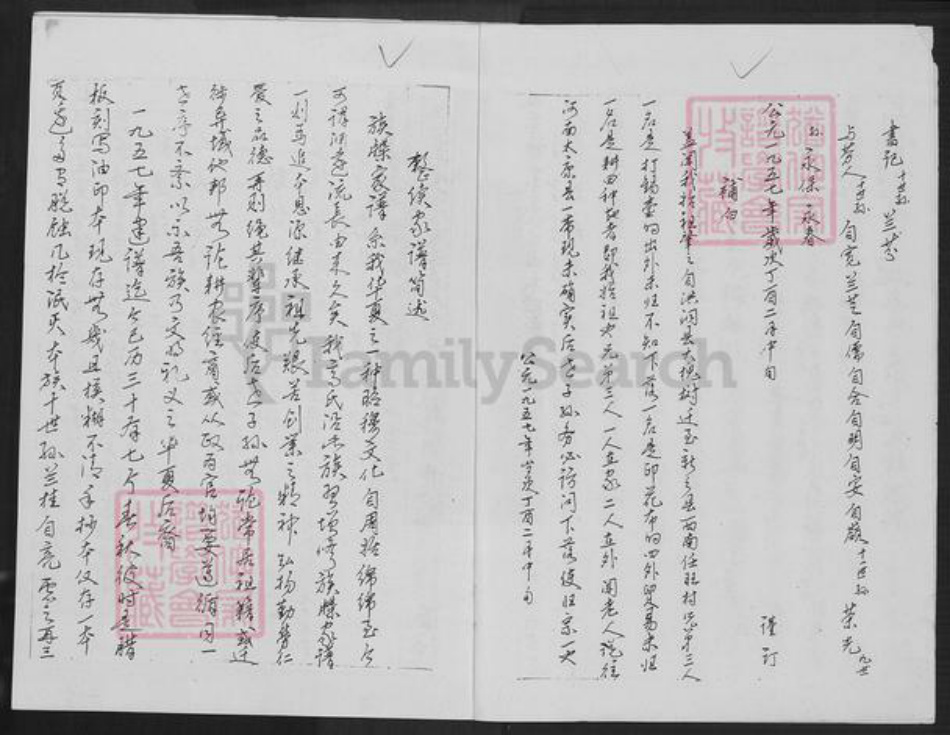 書记 十世孙 兰芬
与芳人 十世孙 自宽 兰芝 自儒 自舍 自明 自安 自敬 十二世孙 荣光 九世
孙 永保 永春 谨订
公元一九五七年歲次丁酉二月中旬
補白
盖闻我括祖肇之自洪洞县大槐树迁至新乡县西南任旺村兄弟三人
一后是打锡壶的出外未归不知下落一后是印花布的四外贸易未归
一后是耕田种地者即我括祖也 兄弟三人一人在家二人在外闻老人说往
河南太康县一带现未确实后世子孙务必访问下落使归宗一大
公元一九五七年歲次丁酉二月中旬
整续家谱简述
族牒家谱系我华夏之一种昭穆文化自周指绵绵至今
可谓源远流长由来久矣我高氏沿此族习增修族牒家谱
一则马追本思源继承祖先艰苦创業之精神弘扬勤劳仁
爱之品德再则绳其輩序使后世子孙無論常居祖籍或迁
徙异域他邦無论耕农经商或从政为官均要遵循同一
世序不紊以示吾族乃文明礼义之华夏后裔
一九五七年建谱迄今已历三十有七个春秋彼时是腊
板刻写油印本现存無几且模糊不清手抄本仅存一本
頁边多有脱蚀几於泯灭本族十世孙兰桂自亮 再三
FamilySearch